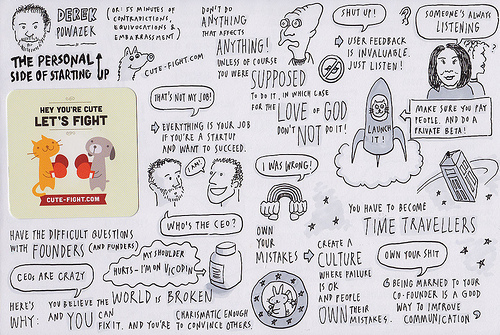 DEREK
POWAZEK
(OR: 55 MINUTES OF
CONTRADICTIONS,
EQUIVOCATIONS &
EMBARRASSMENT)
THE PERSONAL
SIDE OF STARTING UP
CUTE-FIGHT.COM
HEY YOU'RE CUTE
LET'S FIGHT
CUTE-FIGHT.COM
DON'T DO
ANYTHING
THAT AFFECTS
ANYTHING!
UNLESS OF COURSE
YOU WERE SUPPOSED
TO DO IT, IN WHICH CASE
FOR THE LOVE OF GOD
DON'T NOT DO IT!
SHUT UP!
USER FEEDBACK
IS INVALUABLE.
JUST LISTEN!
SOMEONE'S ALWAYS
LISTENING
?
LAUNCH
IT!
MAKE SURE YOU PAY
PEOPLE. AND DO A
PRIVATE BETA!
THAT'S NOT MY JOB!
EVERYTHING IS YOUR JOB
IF YOU'RE A STARTUP
AND WANT TO SUCCEED.
I AM!
WHO'S THE CEO?
I WAS WRONG!
OWN
YOUR
MISTAKES
CREATE A
CULTURE
WHERE FAILURE
IS OK
AND PEOPLE
OWN THEIR
MISTAKES.
YOU HAVE TO BECOME
TIME TRAVELLERS
OWN YOUR SHIT
BEING MARRIED TO YOUR
CO-FOUNDER IS A GOOD
WAY TO IMPROVE
COMMUNICATION
HAVE THE DIFFICULT QUESTIONS
WITH FOUNDERS (AND FUNDERS)
MY SHOULDER
HURTS - I'M ON VICODIN
CEOs ARE CRAZY
HERE'S
WHY:
YOU BELIEVE THE WORLD IS BROKEN
AND YOU CAN
FIX IT. AND YOU'RE
CHARISMATIC ENOUGH
TO CONVINCE OTHERS.